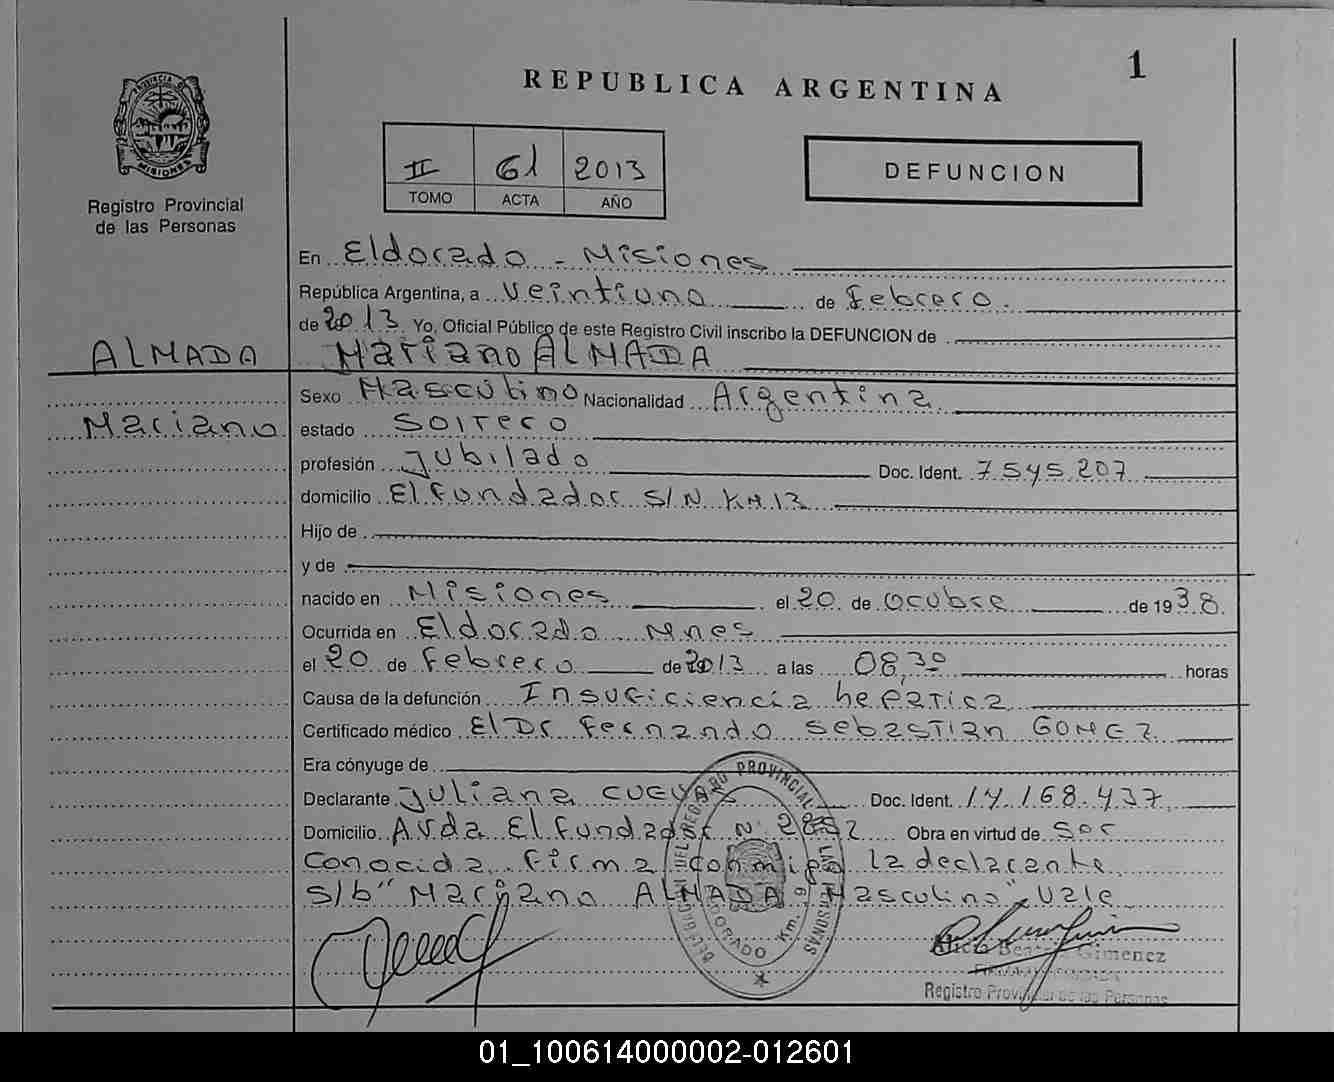 1
REPUBLICA ARGENTINA
PROVINCIA DE
MISIONES
Registro Provincial
de las Personas
II 61 2013
TOMO ACTA AÑO
DEFUNCION
En Eldorado - Misiones
República Argentina, a Veintiuno de Febrero
de 2013 Yo, Oficial Público de este Registro Civil inscribo la DEFUNCION de
ALMADA Mariano ALMADA
Sexo Masculino Nacionalidad Argentina
Mariano estado Soltero
profesión Jubilado Doc. Ident. 7.545.207
domicilio El Fundador S/N KM 13
Hijo de
y de
nacido en Misiones el 20 de Ocubre de 1938.
Ocurrida en Eldorado Mnes
el 20 de Febrero de 2013 a las 08,30 horas
Causa de la defunción Insuficiencia hepatica
Certificado médico El Dr Fernando Sebastian GOMEZ
Era cónyuge de
Declarante Juliana CUEVAS Doc. Ident. 14.168.437
Domicilio Avda El Fundador N 2852 Obra en virtud de Ser
Conocida. Firma conmigo la declarante
S/b "Mariano ALMADA Masculino" Vale
Alicia Beatriz Gimenez
Registro Provincial de las Personas
01_100614000002-012601